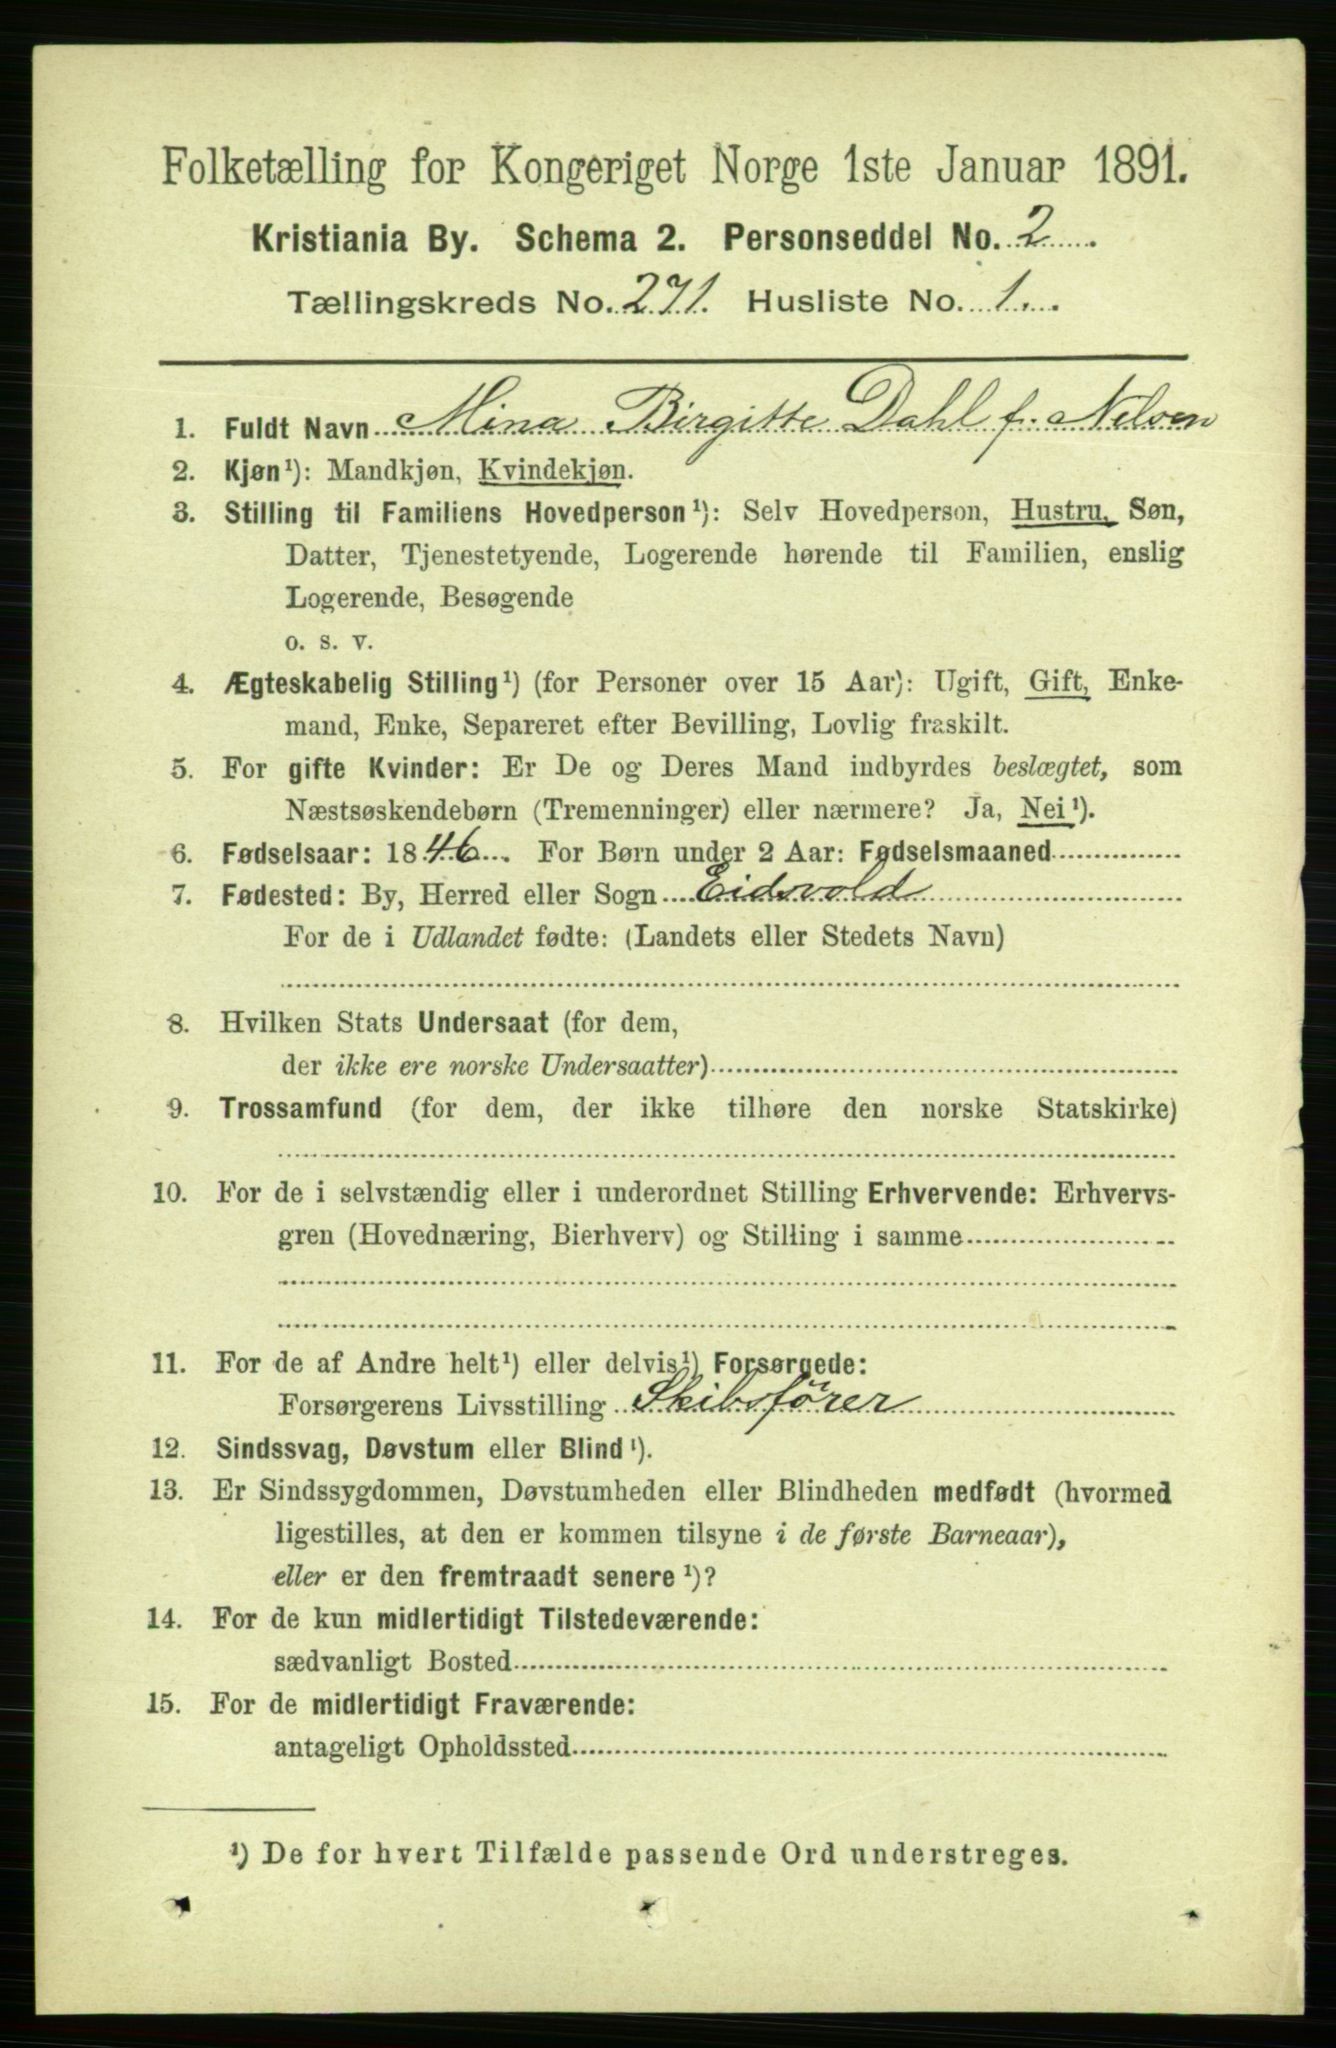 Folketælling for Kongeriget Norge 1ste Januar 1891.
Kristiania By. Schema 2. Personseddel No. 2
Tællingskreds No. 271. Husliste No. 1.
1. Fuldt Navn Mina Birgitte Dahl f. Nilsen
2. Kjøn¹): Mandkjøn, Kvindekjøn.
3. Stilling til Familiens Hovedperson¹): Selv Hovedperson, Hustru, Søn,
Datter, Tjenestetyende, Logerende hørende til Familien, enslig
Logerende, Besøgende
o. s. v.
4. Ægteskabelig Stilling¹) (for Personer over 15 Aar): Ugift, Gift, Enke-
mand, Enke, Separeret efter Bevilling, Lovlig fraskilt.
5. For gifte Kvinder: Er De og Deres Mand indbyrdes beslægtet, som
Næstsøskendebørn (Tremenninger) eller nærmere? Ja, Nei¹).
6. Fødselsaar: 1846. For Børn under 2 Aar: Fødselsmaaned
7. Fødested: By, Herred eller Sogn Eidsvold
For de i Udlandet fødte: (Landets eller Stedets Navn)
8. Hvilken Stats Undersaat (for dem,
der ikke ere norske Undersaatter)
9. Trossamfund (for dem, der ikke tilhøre den norske Statskirke)
10. For de i selvstændig eller i underordnet Stilling Erhvervende: Erhvervs-
gren (Hovednæring, Bierhverv) og Stilling i samme
11. For de af Andre helt¹) eller delvis¹) Forsørgede:
Forsørgerens Livsstilling Skibsfører
12. Sindssvag, Døvstum eller Blind¹).
13. Er Sindssygdommen, Døvstumheden eller Blindheden medfødt (hvormed
ligestilles, at den er kommen tilsyne i de første Barneaar),
eller er den fremtraadt senere¹)?
14. For de kun midlertidigt Tilstedeværende:
sædvanligt Bosted
15. For de midlertidigt Fraværende:
antageligt Opholdssted
¹) De for hvert Tilfælde passende Ord understreges.